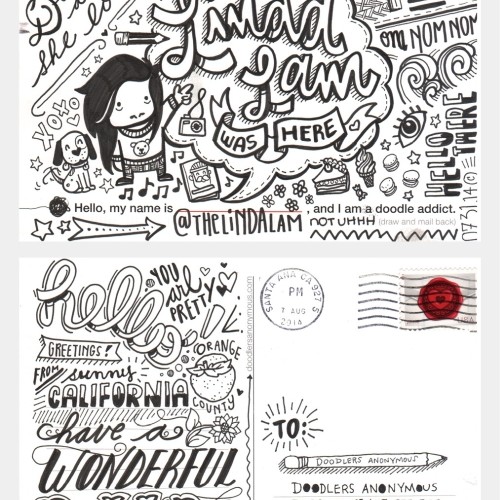 she lo
Linda
Lam
WAS HERE
om NOM NOM
XOXO
HELLO THERE
073114
Hello, my name is @THELINDALAM, and I am a doodle addict.
NOT UHHH (draw and mail back)
hello
YOU are PRETTY
GREETINGS!
FROM sunny
CALIFORNIA
ORANGE COUNTY
have a
WONDERFUL
doodlersanonymous.com
SANTA ANA CA 927
PM
7 AUG
2014
USA
TO:
DOODLERS ANONYMOUS
DOODLERS ANONYMOUS